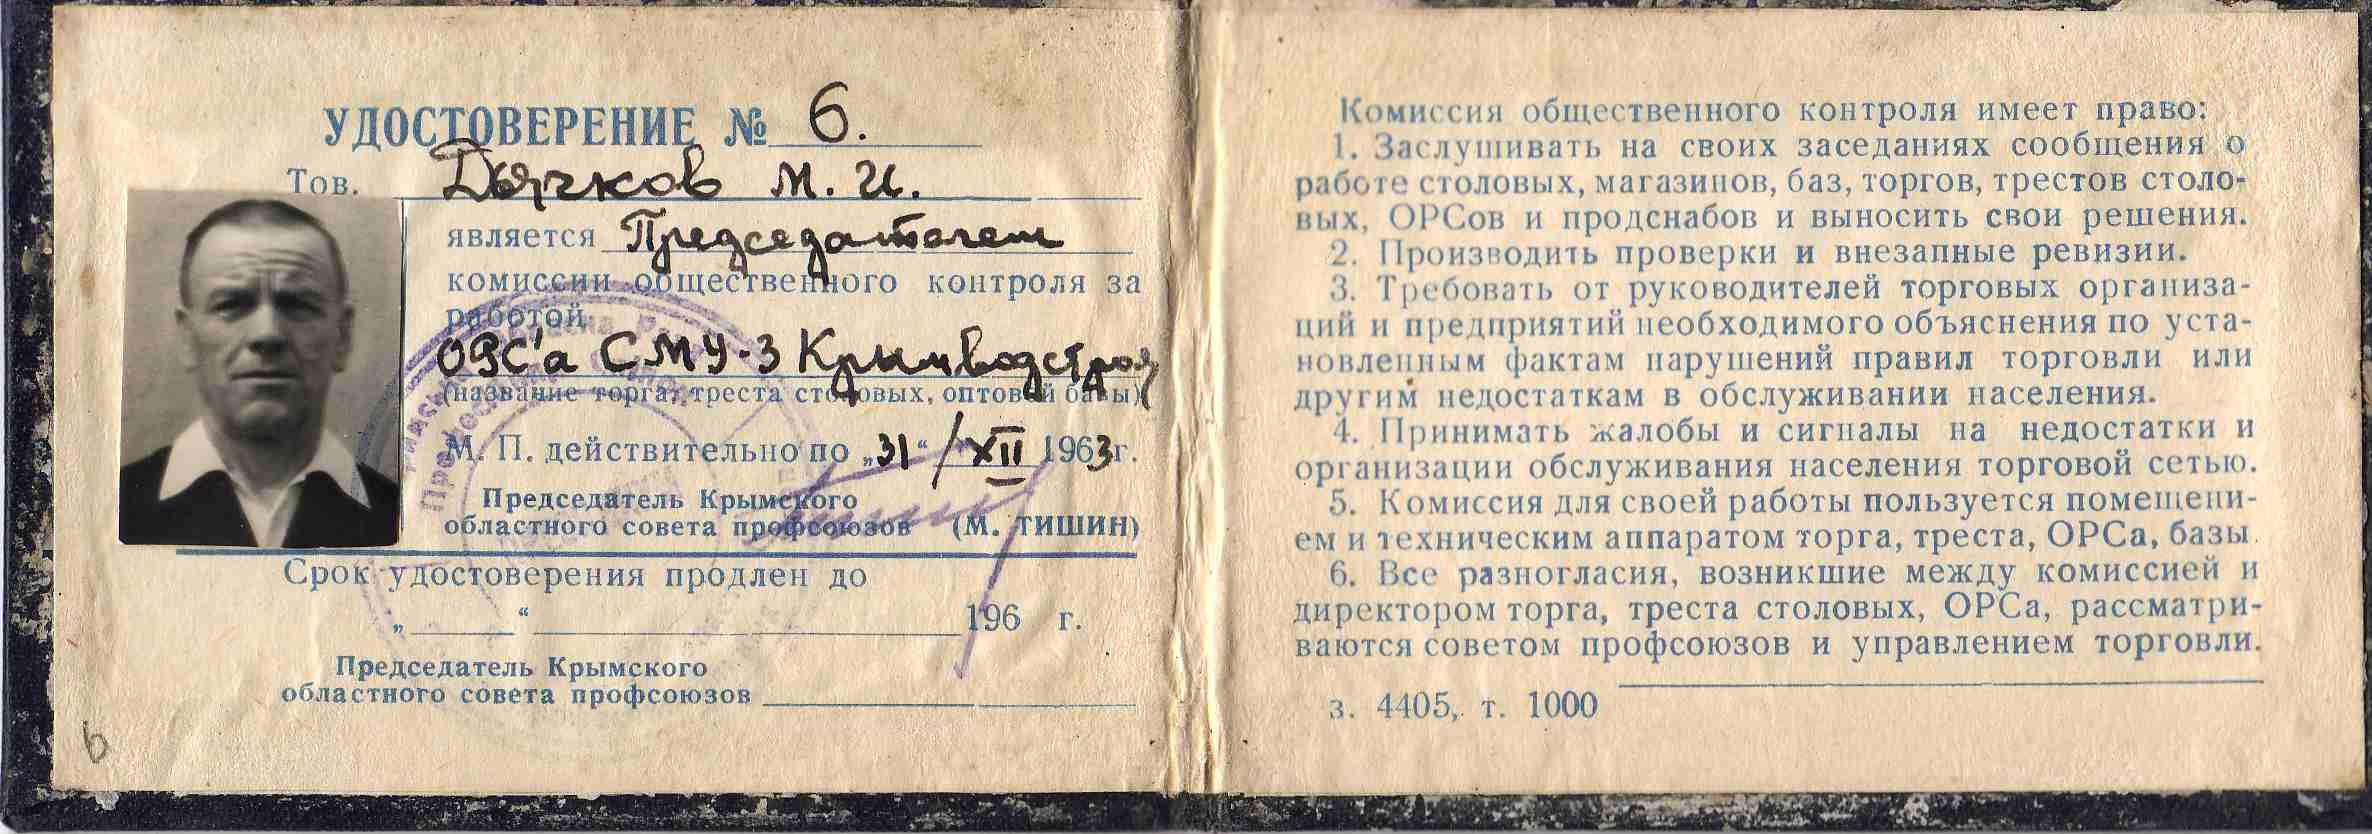 УДОСТОВЕРЕНИЕ № 6.
Тов. Дьячков М. И.
является Председателем
комиссии общественного контроля за
работой
ОРС'а СМУ-3 Крымводстроя
(название торга, треста столовых, оптовой базы)
М. П. действительно по „31“ XII 1963 г.
Председатель Крымского
областного совета профсоюзов (М. ТИШИН)
Срок удостоверения продлен до
„ “ 196 г.
Председатель Крымского
областного совета профсоюзов
6
Комиссия общественного контроля имеет право:
1. Заслушивать на своих заседаниях сообщения о
работе столовых, магазинов, баз, торгов, трестов столо-
вых, ОРСов и продснабов и выносить свои решения.
2. Производить проверки и внезапные ревизии.
3. Требовать от руководителей торговых организа-
ций и предприятий необходимого объяснения по уста-
новленным фактам нарушений правил торговли или
другим недостаткам в обслуживании населения.
4. Принимать жалобы и сигналы на недостатки и
организации обслуживания населения торговой сетью.
5. Комиссия для своей работы пользуется помещени-
ем и техническим аппаратом торга, треста, ОРСа, базы.
6. Все разногласия, возникшие между комиссией и
директором торга, треста столовых, ОРСа, рассматри-
ваются советом профсоюзов и управлением торговли.
з. 4405, т. 1000